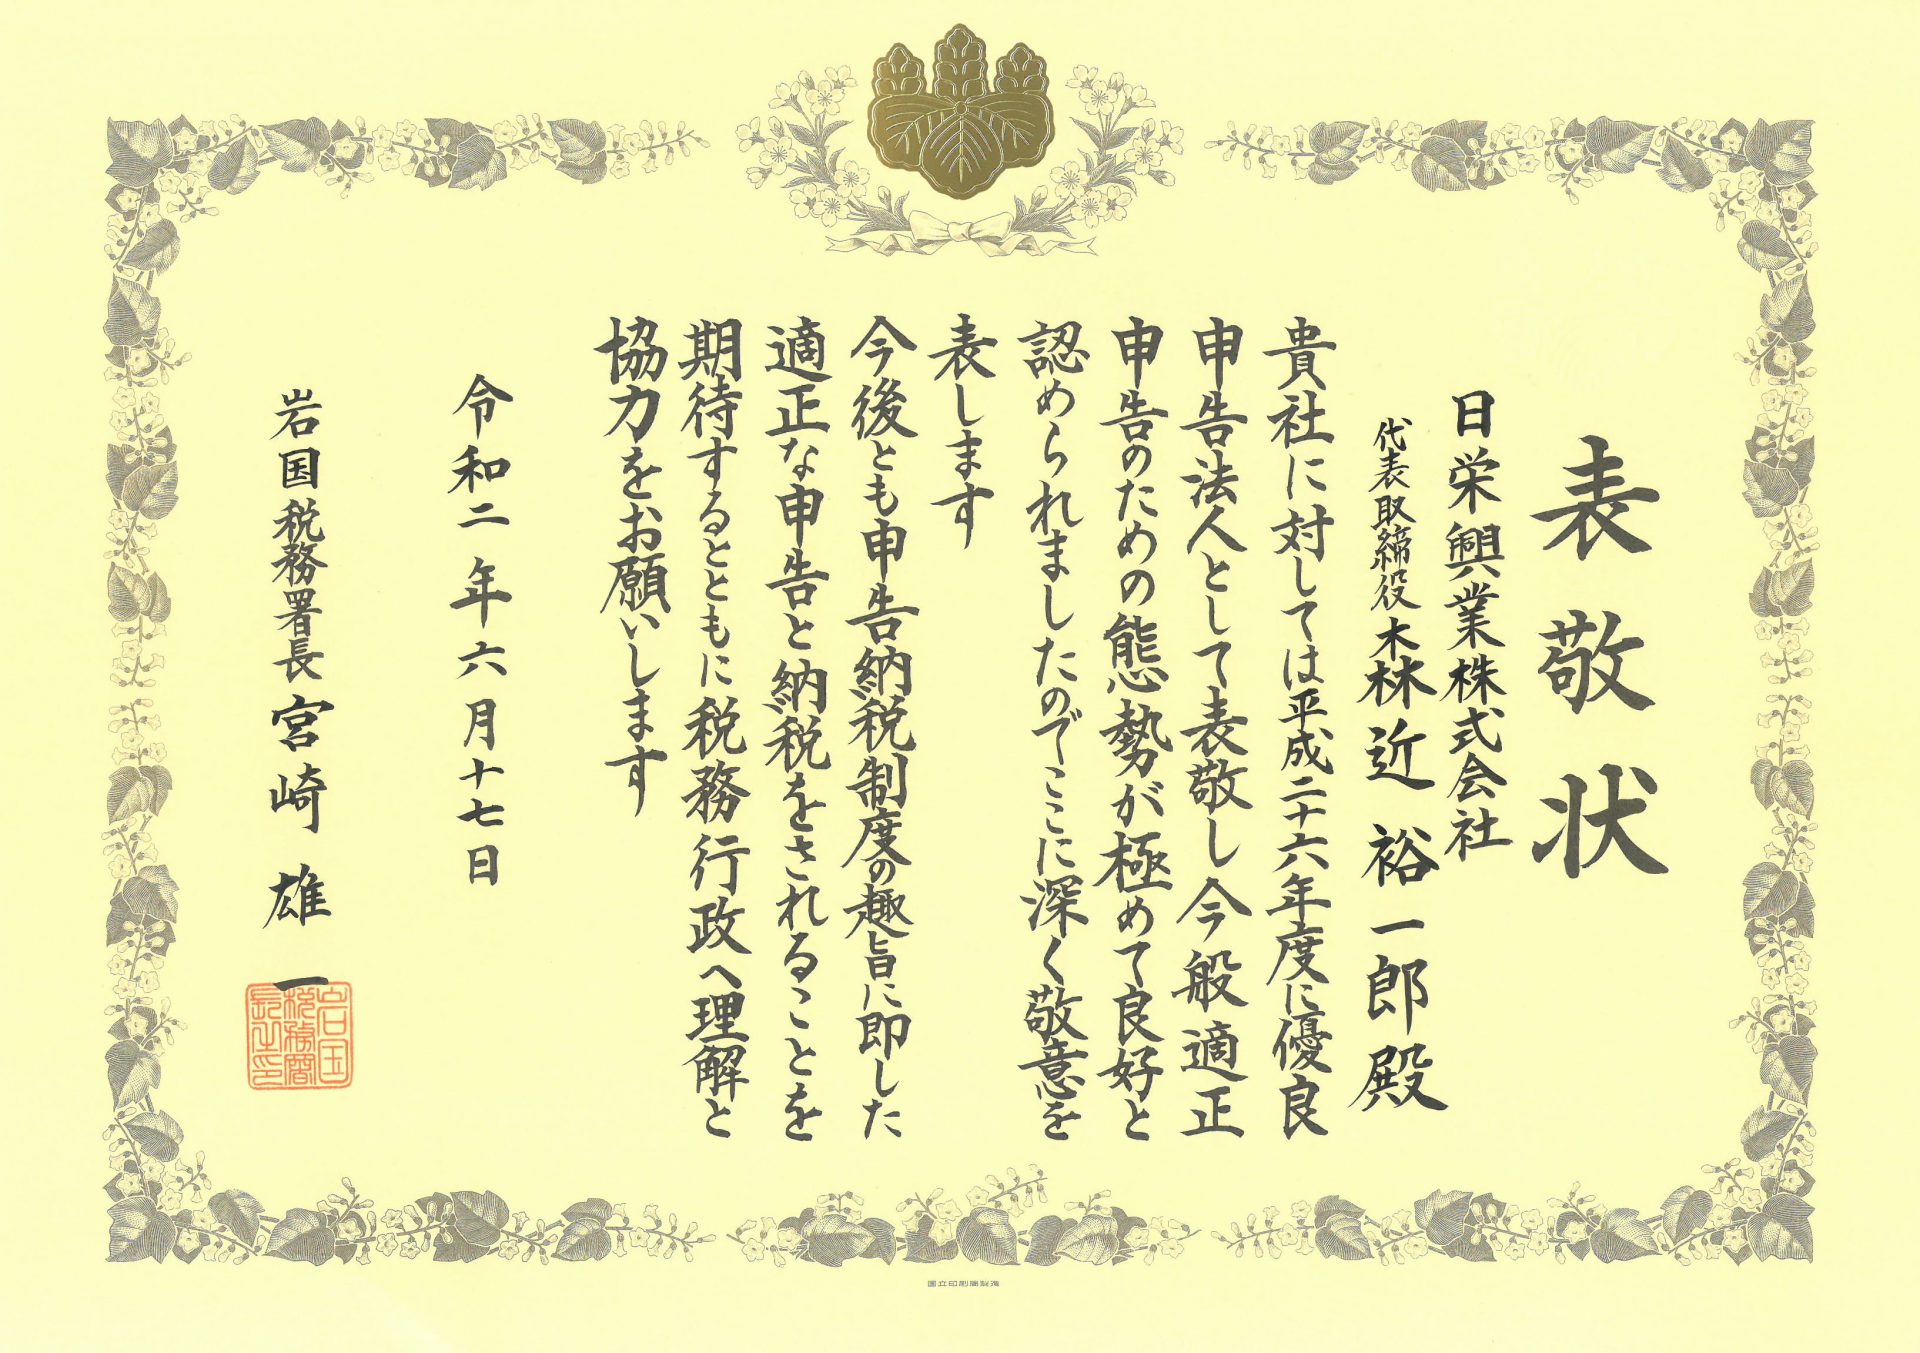 表敬状
日栄興業株式会社
代表取締役 森近裕一郎殿
貴社に対しては平成二十六年度に優良
申告法人として表敬し今般適正
申告のための態勢が極めて良好と
認められましたのでここに深く敬意を
表します
今後とも申告納税制度の趣旨に即した
適正な申告と納税をされることを
期待するとともに税務行政へ理解と
協力をお願いします
令和二年六月十七日
岩国税務署長 宮崎雄一
岩国
税務署
長之印
国立印刷局製造